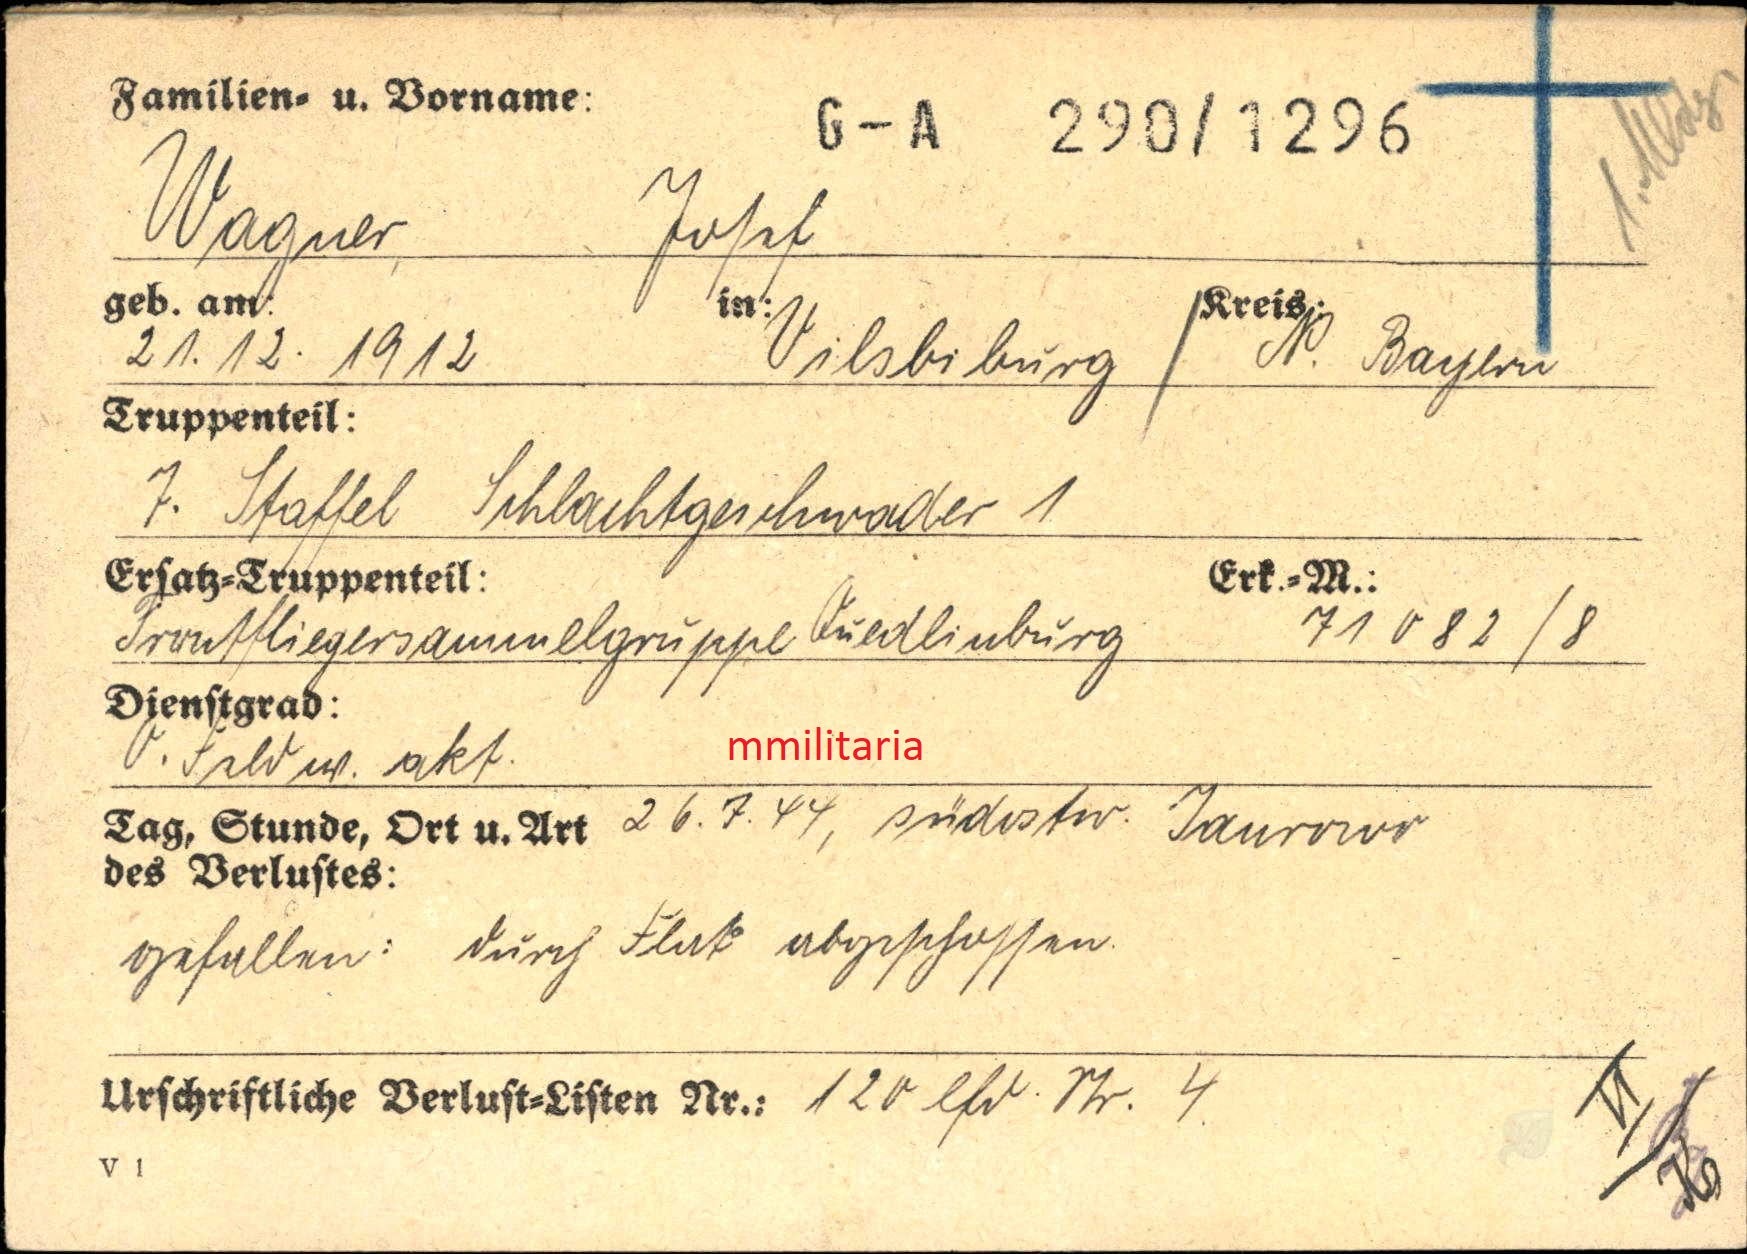 Familien- u. Vorname:
G-A 290/1296
Wagner, Josef
geb. am: in: Kreis:
21.12.1912 Vilsbiburg / N. Bayern
Truppenteil:
7. Staffel Schlachtgeschwader 1
Ersatz-Truppenteil: Erk.-M.:
Frontfliegersammelgruppe Quedlinburg 71082/8
Dienstgrad:
O. Feldw. akt.
mmilitaria
Tag, Stunde, Ort u. Art 26.7.44, südostw. Jaurowo
des Verlustes:
gefallen: durch Flak abgeschossen.
Urschriftliche Verlust-Listen Nr.: 120 lfd. Nr. 4
V 1
VI